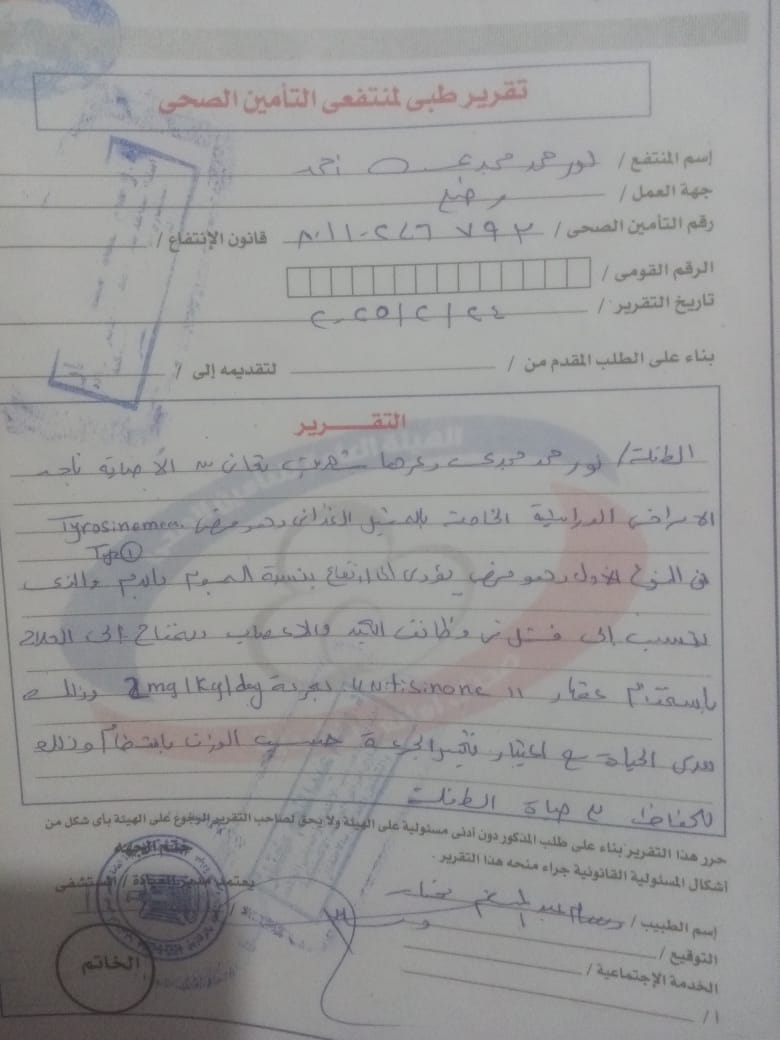 تقرير طبى لمنتفعى التأمين الصحى
إسم المنتفع / نور محمد محمد أحمد
جهة العمل / رضع
رقم التأمين الصحى / ٨٠١١٠٢٤٦٧٩٣ قانون الإنتفاع /
الرقم القومى /
تاريخ التقرير / ٢٠٢٥/٢/٢٤
بناء على الطلب المقدم من / لتقديمه إلى /
التقـــرير
الطفلة / نور محمد مجدى وعمرها شهرين تعانى من الأصابة بأحد
الامراض الوراثية الخاصة بالتمثيل الغذائى وهو مرض Tyrosinemea
Type ①
من النوع الأول وهو مرض يؤدى الى ارتفاع بنسبة السموم بالدم والذى
يتسبب إلى فشل فى وظائف الكبد والاعصاب وتحتاج إلى العلاج
باستخدام عقار " Nitisinone " بجرعة 2mg/Kg/day وذلك
مدى الحياة مع اعتبار تغير الجرعة حسب الوزن بانتظام وذلك
للحفاظ على حياة الطفلة
حرر هذا التقرير بناء على طلب المذكور دون أدنى مسئولية على الهيئة ولا يحق لصاحب التقرير الرجوع على الهيئة بأى شكل من
أشكال المسئولية القانونية جراء منحه هذا التقرير .
ختم الجهه
يعتمد مدير العيادة / المستشفى
إسم الطبيب /
التوقيع /
الخدمة الإجتماعية /
الخاتم
أ /